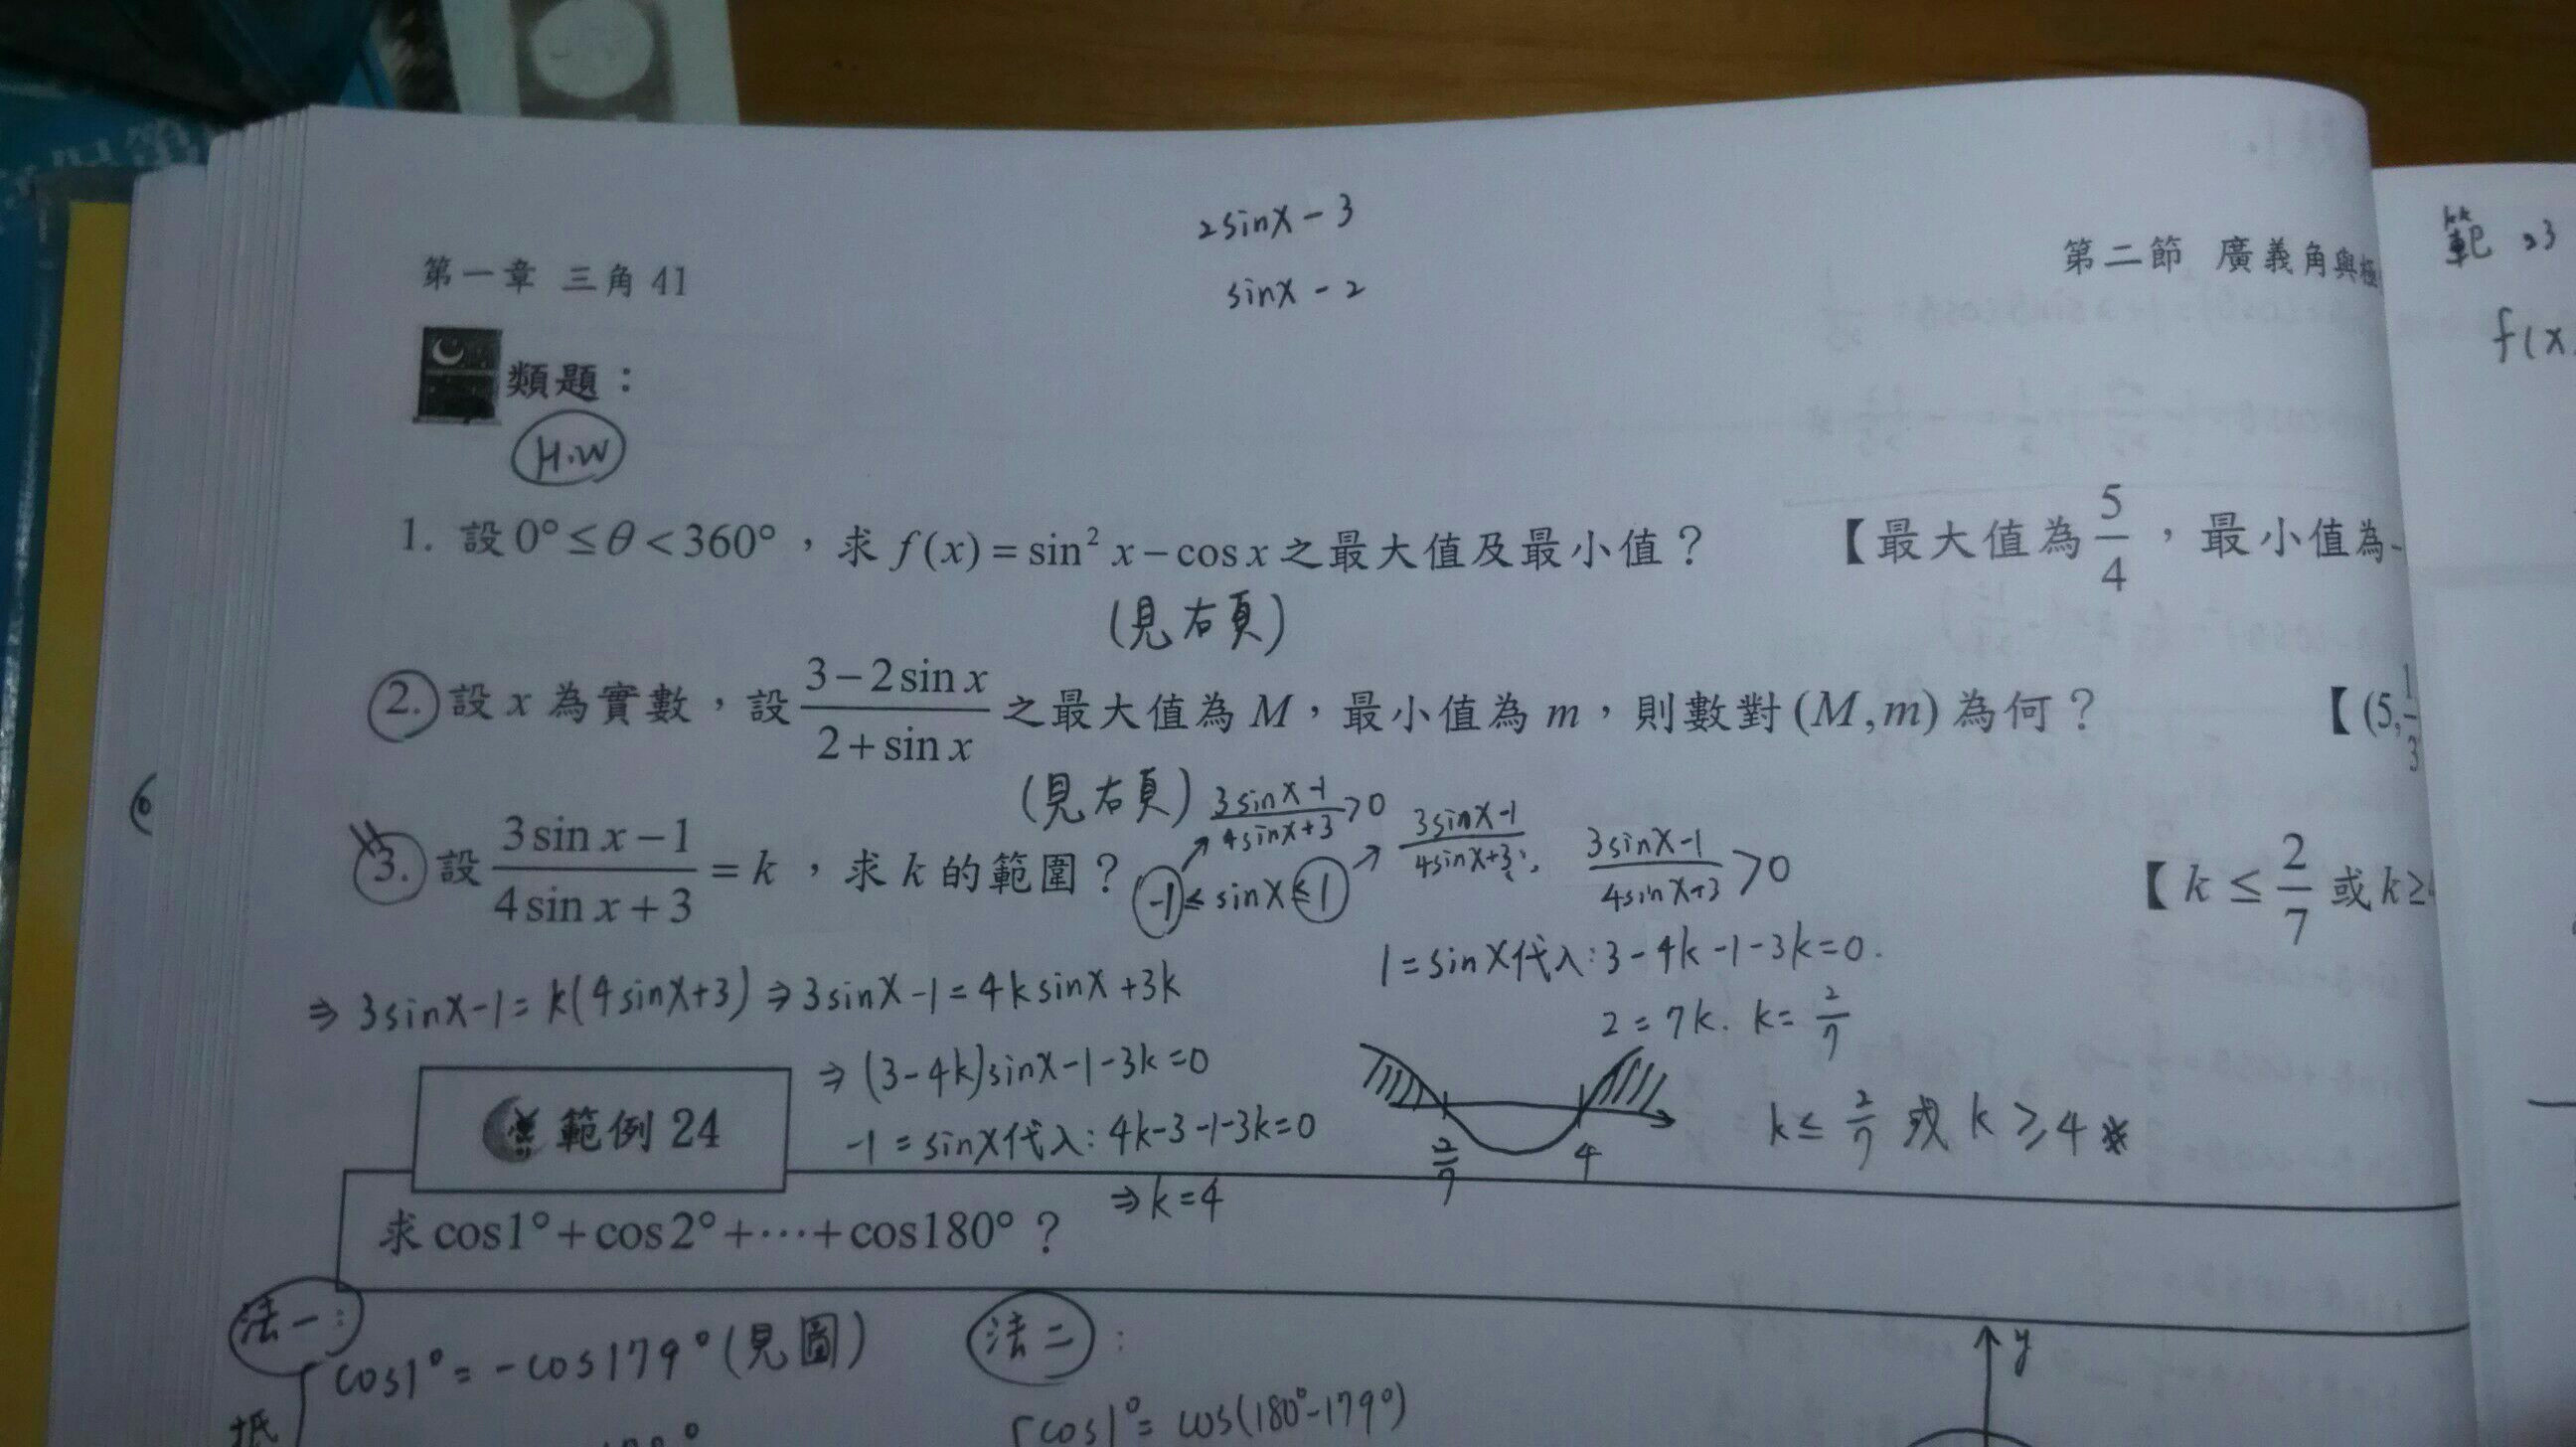 2sinx-3
sinx-2
第一章 三角 41
第二節 廣義角與極
範 23
f(x
類題：
H.W
1. 設 0°≤θ<360°，求 f(x)=sin² x-cos x 之最大值及最小值？ 【最大值為 5/4，最小值為-
(見右頁)
2. 設 x 為實數，設 (3-2sin x)/(2+sin x) 之最大值為 M，最小值為 m，則數對 (M,m) 為何？ 【(5,1/3
(見右頁)
(3sinx-1)/(4sinx+3)>0 (3sinx-1)/(4sinx+3) (3sinx-1)/(4sinx+3)>0
3. 設 (3sin x-1)/(4sin x+3)=k，求 k 的範圍？ -1≤sinx≤1 【k≤2/7 或 k≥
1=sinx代入:3-4k-1-3k=0.
⇒ 3sinx-1=k(4sinx+3)⇒3sinx-1=4ksinx+3k
2=7k. k=2/7
⇒(3-4k)sinx-1-3k=0
-1=sinx代入:4k-3-1-3k=0
2/7 4
k≤2/7 或 k≥4
⇒k=4
範例 24
求 cos1°+cos2°+⋯+cos180°？
法一:
cos1°=-cos179°(見圖)
法二:
cos1°=cos(180°-179°)
y
抵